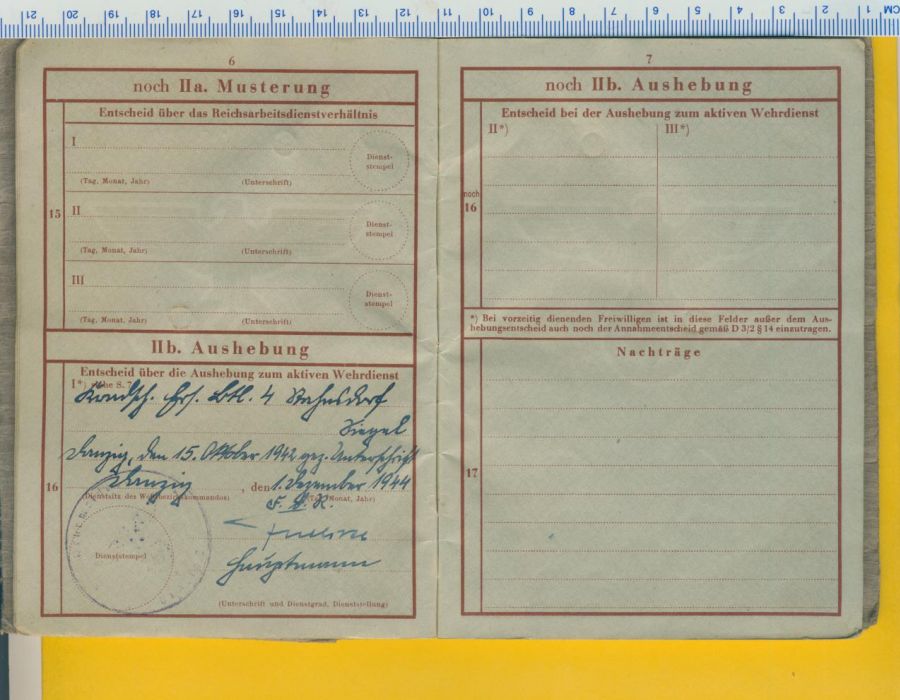 CM 1 2 3 4 5 6 7 8 9 10 11 12 13 14 15 16 17 18 19 20 21
6
noch IIa. Musterung
Entscheid über das Reichsarbeitsdienstverhältnis
15
I
Dienst-
stempel
(Tag, Monat, Jahr) (Unterschrift)
II
Dienst-
stempel
(Tag, Monat, Jahr) (Unterschrift)
III
Dienst-
stempel
(Tag, Monat, Jahr) (Unterschrift)
IIb. Aushebung
Entscheid über die Aushebung zum aktiven Wehrdienst
16
I*) siehe S. 7
Ers. Btl. 4 Stahnsdorf
Siegel
Danzig, den 15. Oktober 1942 gez. Unterschrift
Danzig, den 1. Dezember 1944
(Dienstsitz des Wehrbezirkskommandos) (Tag, Monat, Jahr)
F. d. R.
Hauptmann
Dienststempel
(Unterschrift und Dienstgrad, Dienststellung)
7
noch IIb. Aushebung
Entscheid bei der Aushebung zum aktiven Wehrdienst
noch
16
II*) III*)
*) Bei vorzeitig dienenden Freiwilligen ist in diese Felder außer dem Aus-
hebungsentscheid auch noch der Annahmeentscheid gemäß D 3/2 § 14 einzutragen.
Nachträge
17